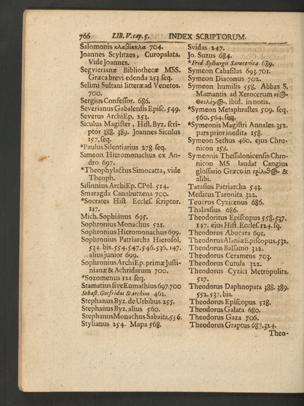 766 LIB. V. cap. 5. INDEX SCRIPTORUM.
Salomonis 704.
Joannes Scylitzes, Curopalata. Vide Joannes.
Segvieriana Bibliothecæ MSS. Græca brevi edenda 253 seq.
Selimi Sultani litteræ ad Venetos. 700.
Sergius Confessor. 686.
Severianus Gabalensis Episc. 549.
Severus ArchiEp. 251.
Siculus Magister, Hist. Byz. scriptor 388. 389. Joannes Siculus 157. seq.
*Paulus Silentiarius 278 seq.
Simeon Hieromonachus ex Andro 697.
*Theophylactus Simocatta, vide Theoph.
Sisinnius ArchiEp. CPol. 514.
Smaragda Cantibuttena 700.
*Socrates Hist. Eccles. scriptor. 117.
Mich. Sophianus 695.
Sophronius Monachus 521.
Sophronius Hieromonachus 699.
Sophronius Patriarcha Hierosol. 534. bis. 554. 547. 546. 536. 147. alius junior 699.
Sophronius ArchiEp. primæ Justinianæ & Achridarum 700.
*Sozomenus 121 seq.
Stamatius sive Eumathius 697. 700
Sebast. Gorfridus Starckius 461.
Stephanus Byz. de Urbibus 255.
Stephanus Byz. alius 560.
Stephanus Monachus Sabaita, 556.
Stylianus 254. Mapa 568.
Svidas 247.
Jo. Suzus 684.
*Frid. Sylburgii Saracenica 689.
Symeon Cabasilas 695 701.
Symeon Diaconus 702.
Symeon humilis 558. Abbas S. Mamantis ad Xerocercum ibid. innotis.
*Symeon Metaphrastes 509. seq. 560. 564. seq.
*Symeonis Magistri Annales 352. pars prior inedita 158.
Symeon Sethus 460. ejus Chronicon 156.
Symeonis Thessalonicensis Chronicon MS laudat Cangius glossario Græco in & alibi.
Tarasius Patriarcha 543.
Metaxus Taronita 212.
Teucrus Cyzicenus 686.
Thalassius 686.
Theodoritus Episcopus 558. 537. 147. ejus Hist. Eccles. 124. sq.
Theodorus Abucara 691.
Theodorus Alaniæ Episcopus, 532.
Theodorus Balsamo 312.
Theodorus Cerameus 703.
Theodorus Cutula 312.
Theodorus Cyzici Metropolita. 517.
Theodorus Daphnopata 388. 389. 552. 537. bis.
Theodorus Episcopus 528.
Theodorus Galata 680.
Theodorus Gaza 706.
Theodorus Graptus 687. 314.
Theo-